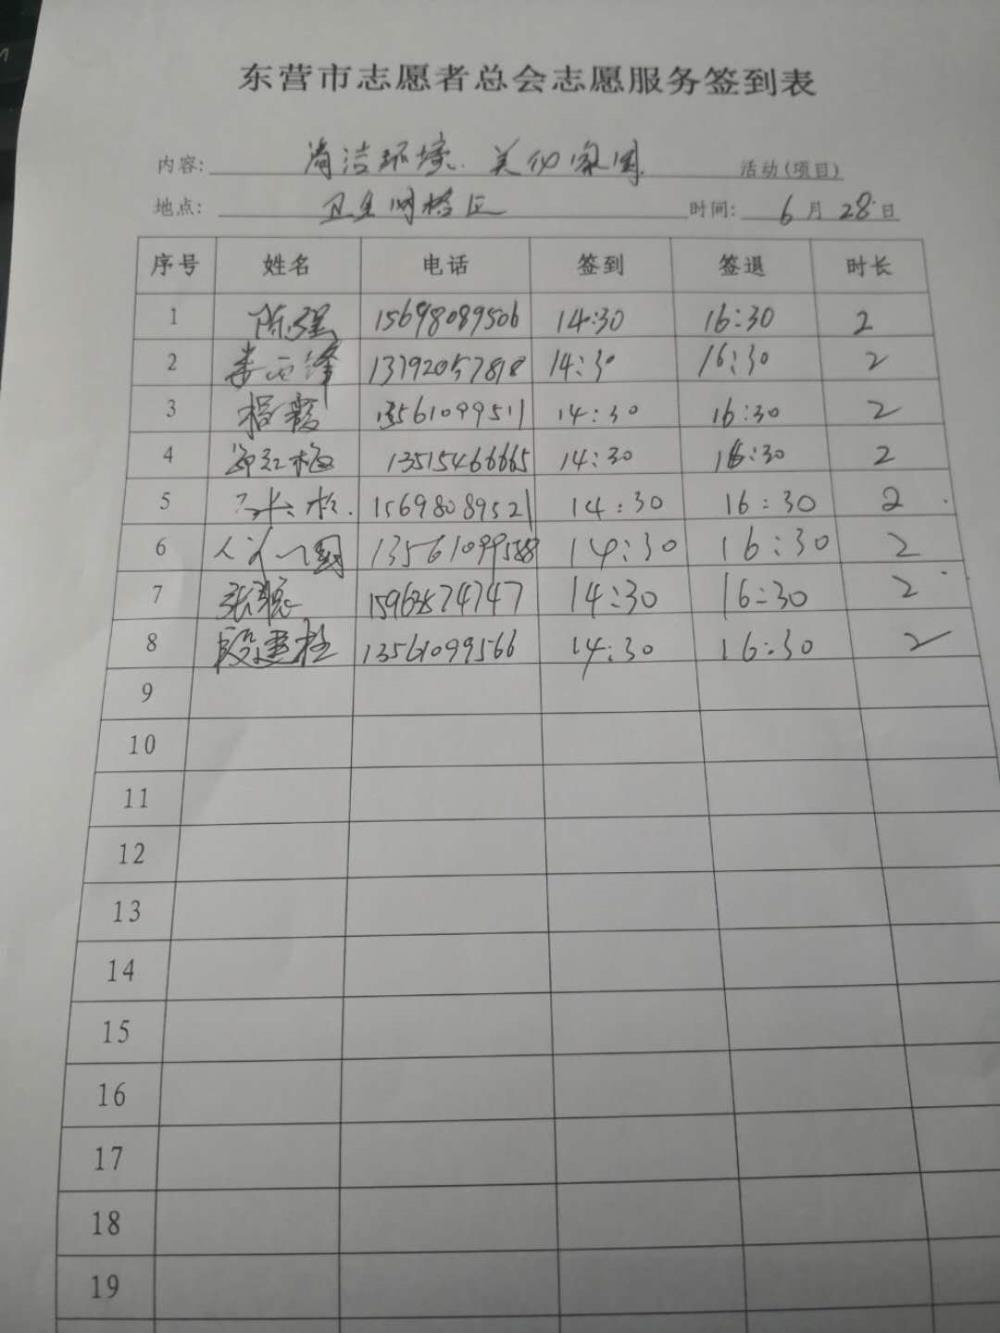 东营市志愿者总会志愿服务签到表
内容: 清洁环境 美化家园 活动(项目)
地点: 卫生网格区 时间: 6月28日
序号 姓名 电话 签到 签退 时长
1 陈强 15698089506 14:30 16:30 2
2 13792057818 14:30 16:30 2
3 杨毅 13561099511 14:30 16:30 2
4 郭红梅 13515466665 14:30 16:30 2
5 15698089521 14:30 16:30 2
6 14:30 16:30 2
7 14:30 16:30 2
8 段建柱 13561099566 14:30 16:30 2
9
10
11
12
13
14
15
16
17
18
19